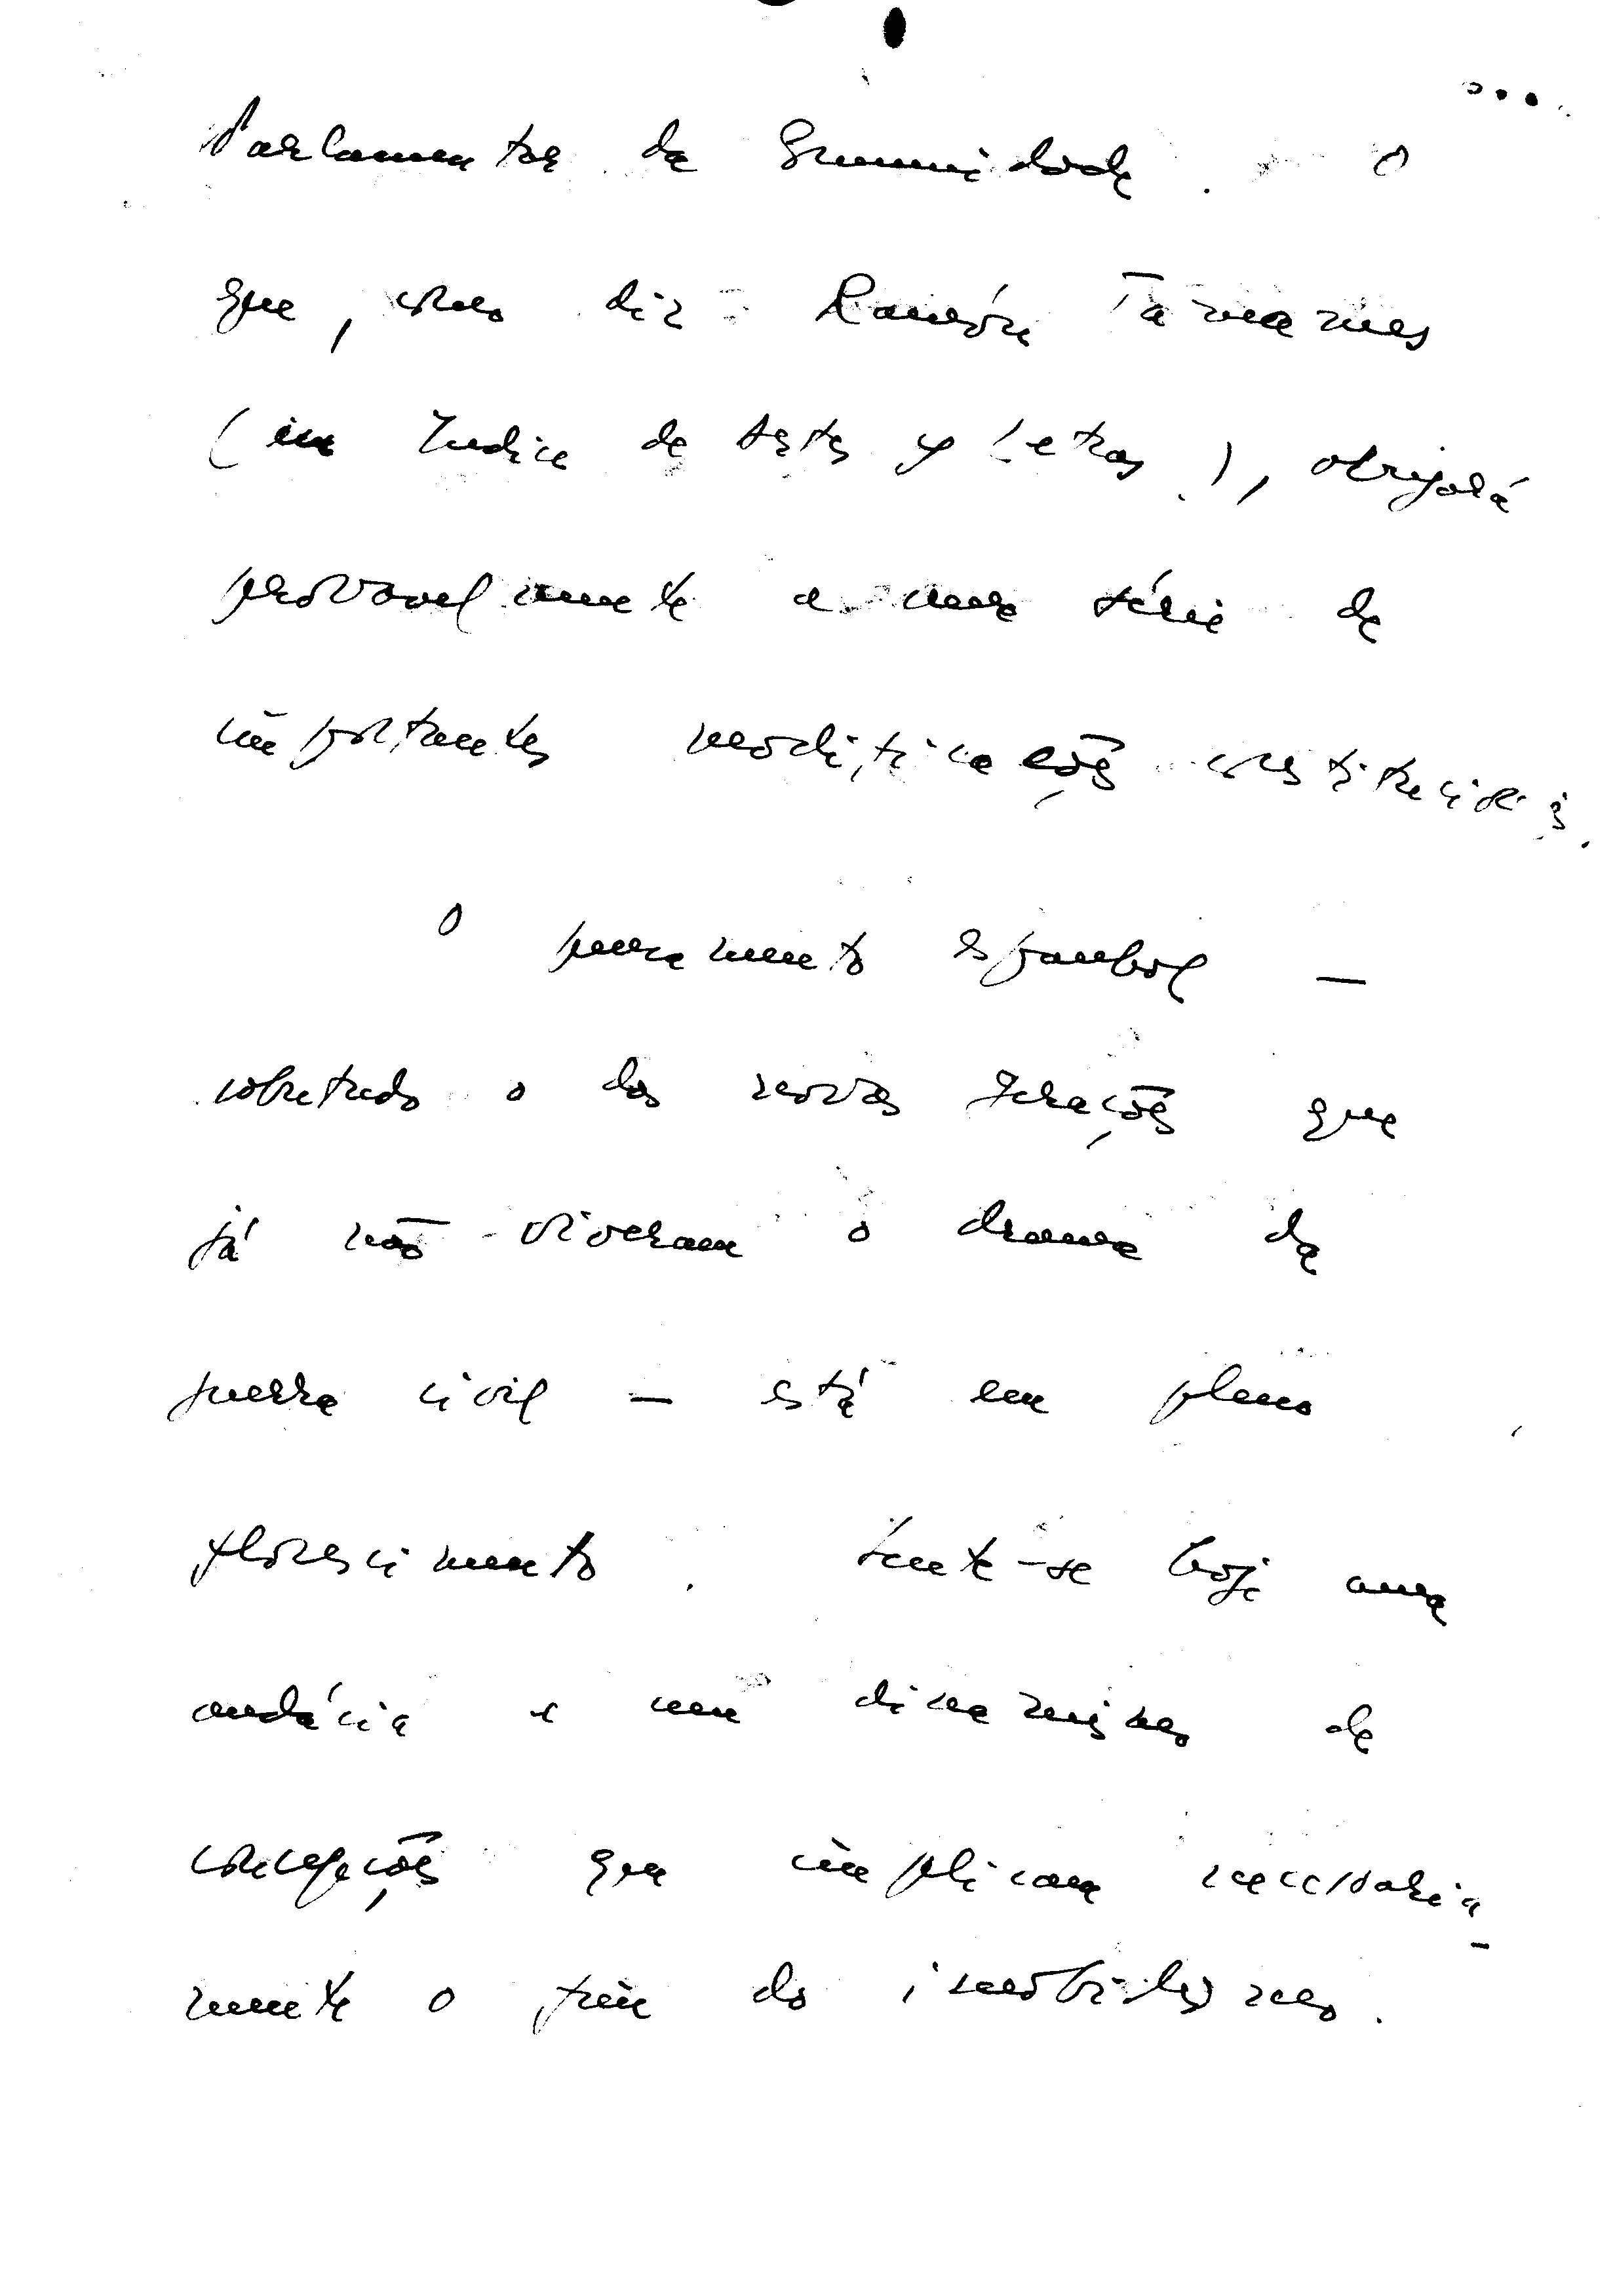 Parlamentos da Comunidade. O
que, como diz Ramón Tamames
(in Indice de Artes y Letras), obrigará
provavelmente a uma série de
importantes modificações constitucionais.
O pensamento espanhol —
sobretudo o das novas gerações que
já não viveram o drama da
guerra civil — está em pleno
florescimento. Sente-se hoje uma
audácia e um dinamismo de
concepções que implicam necessaria-
mente o fim do imobilismo.